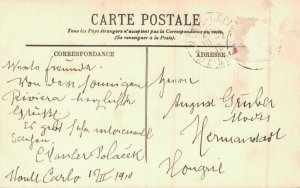 CARTE POSTALE
Tous les Pays étrangers n'acceptent pas la Correspondance au verso,
(Se renseigner à la Poste).
CORRESPONDANCE
ADRESSE
Werte Freunde.
Von dem sonnigen
Riviera herzliche
Grüße
Es gibt sehr interessante
Sachen.
Polacek
Monte Carlo 1910
Herrn
August Gruber
Hermannstadt
Hongrie